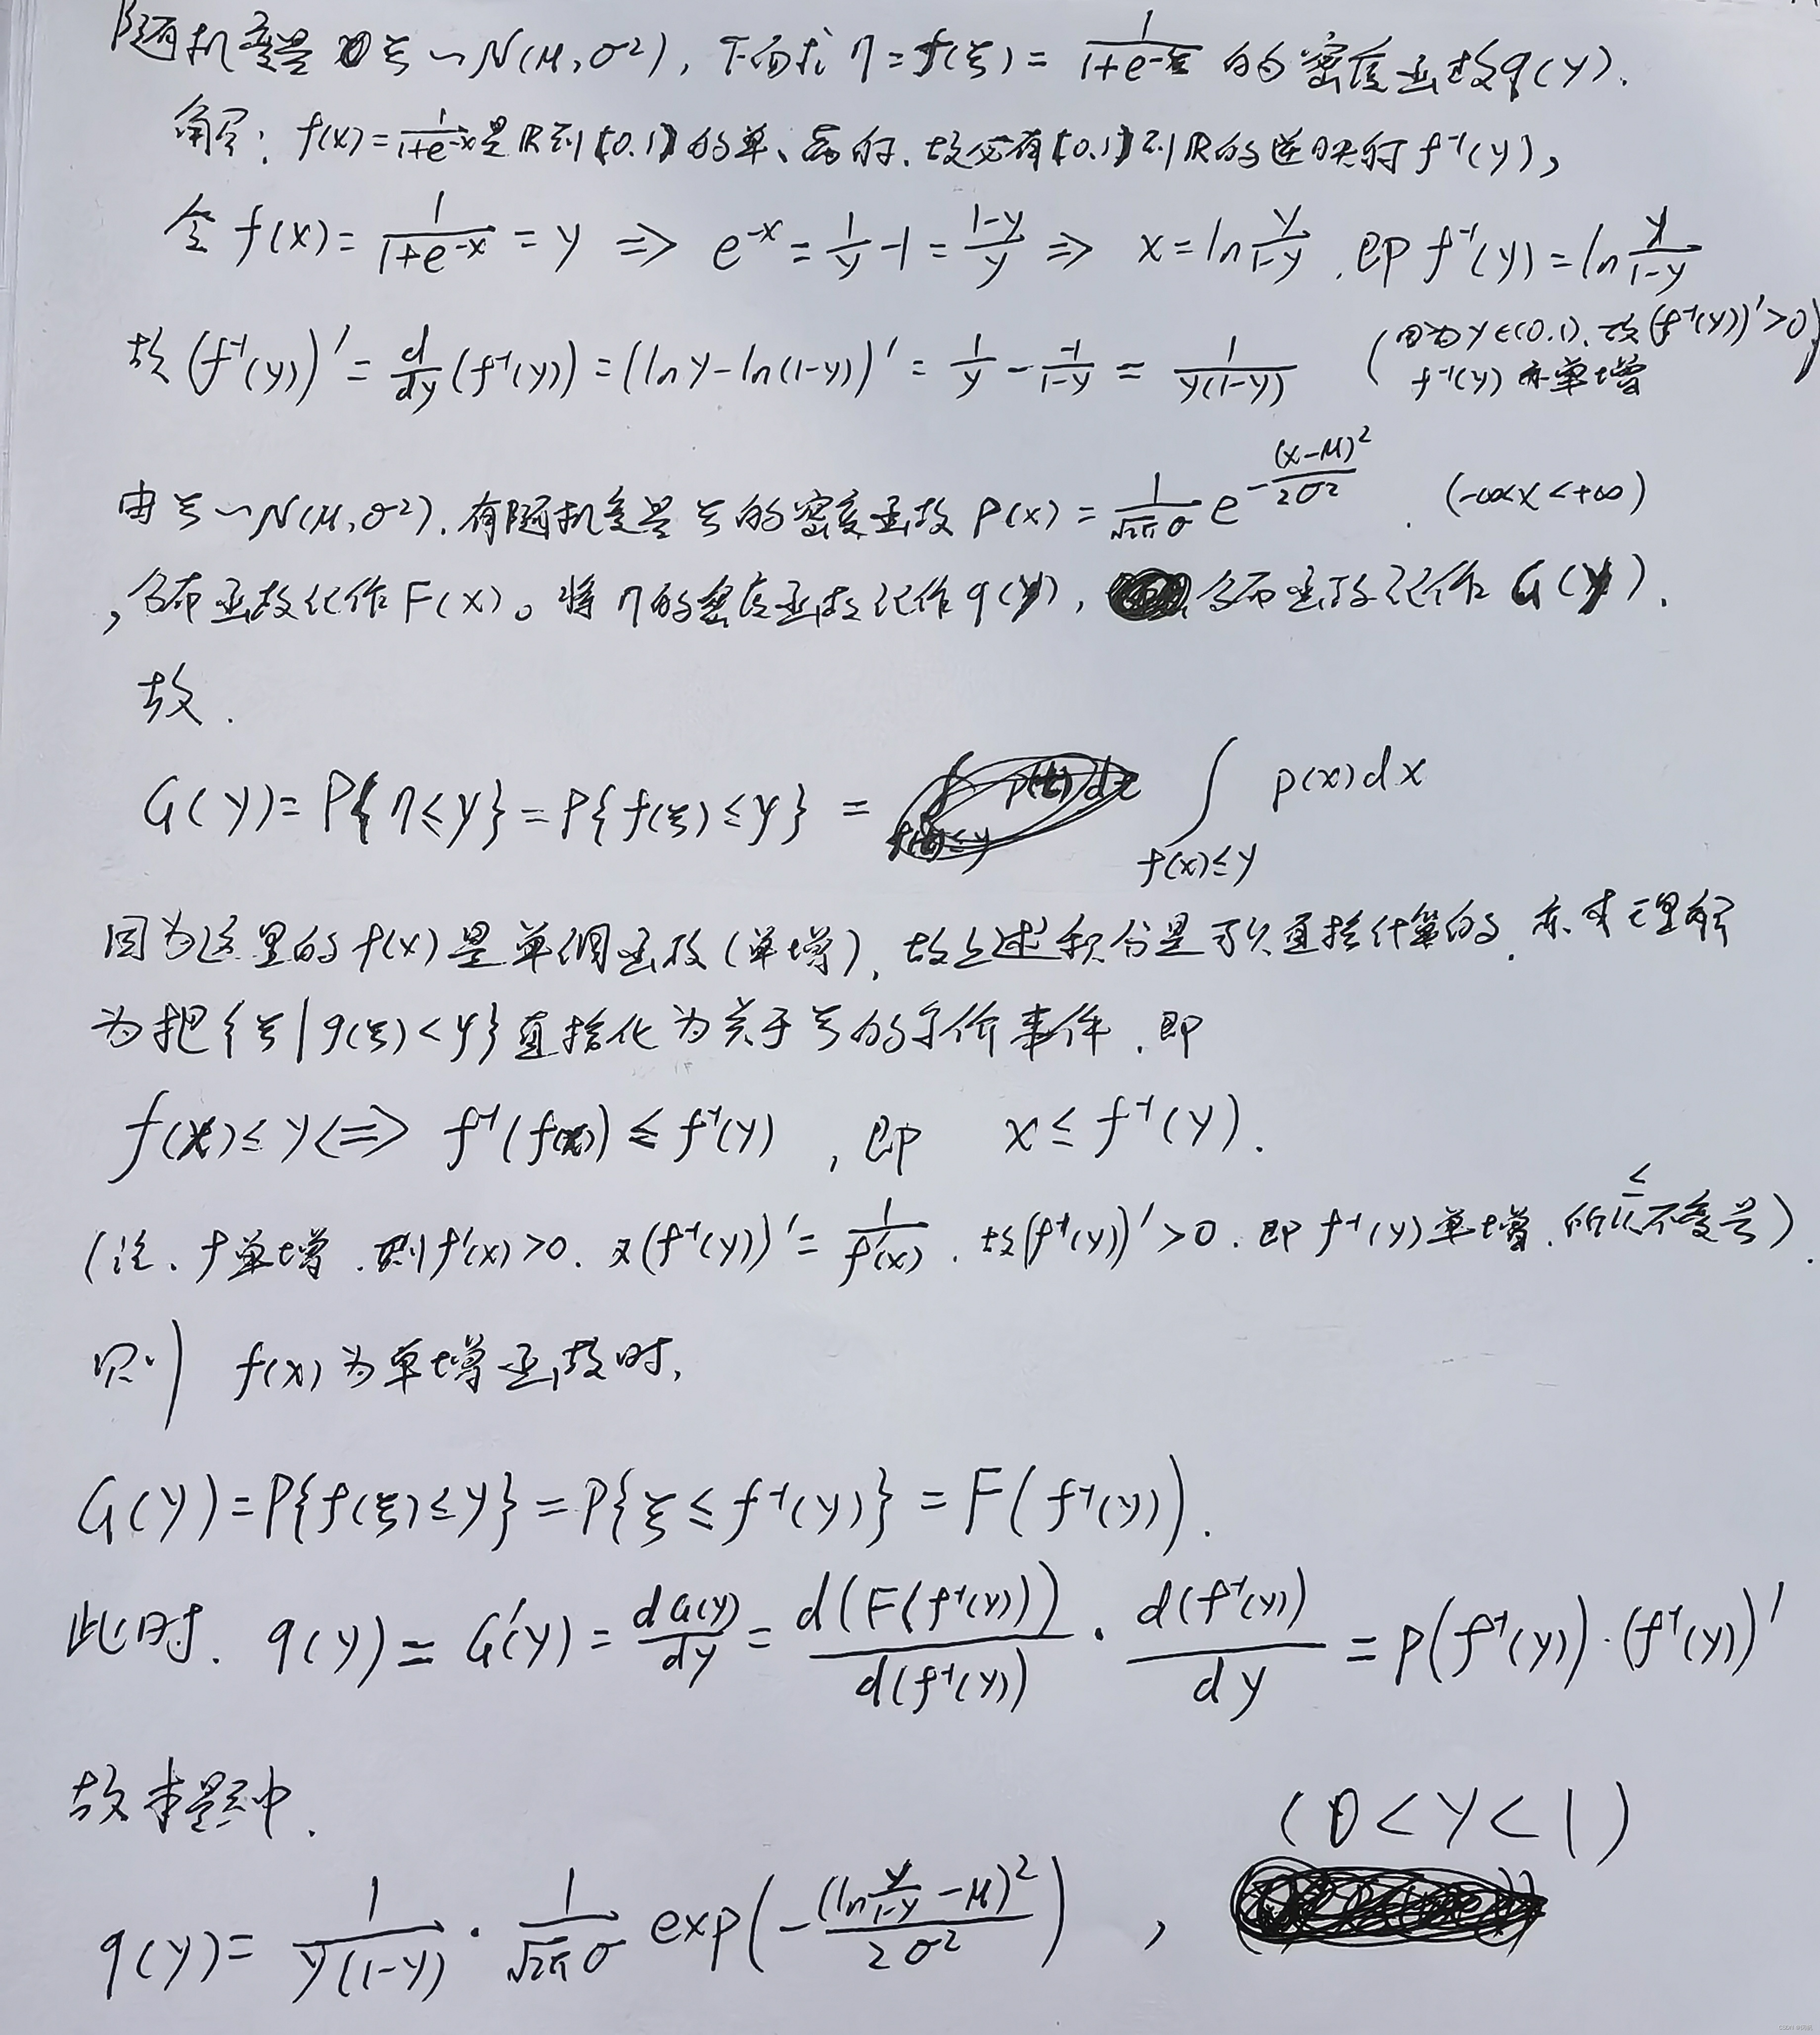 随机变量ξ~N(μ,σ²),下面求η=f(ξ)=1/(1+e^{-ξ})的密度函数q(y).
解:f(x)=1/(1+e^{-x})是ℝ到(0,1)的单、满射.故必有(0,1)到ℝ的逆映射f⁻¹(y),
令f(x)=1/(1+e^{-x})=y ⇒ e^{-x}=1/y-1=(1-y)/y ⇒ x=ln y/(1-y),即f⁻¹(y)=ln y/(1-y)
故(f⁻¹(y))'=d/dy(f⁻¹(y))=(lny-ln(1-y))'=1/y-(-1)/(1-y)=1/(y(1-y)) (因为y∈(0,1).故(f⁻¹(y))'>0
f⁻¹(y)亦单增)
由ξ~N(μ,σ²).有随机变量ξ的密度函数p(x)=1/(√2π σ) e^{-(x-μ)²/(2σ²)}.(-∞<x<+∞)
,分布函数记作F(x)。将η的密度函数记作q(y),分布函数记作G(y).
故.
G(y)=P{η≤y}=P{f(ξ)≤y}=∫_{f(x)≤y} p(x)dx
因为这里的f(x)是单调函数(单增),故上述积分是可以直接计算的.亦可理解
为把{ξ|g(ξ)<y}直接化为关于ξ的等价事件.即
f(x)≤y⇔f⁻¹(f(x))≤f⁻¹(y),即 x≤f⁻¹(y).
(注.f单增.则f'(x)>0.又(f⁻¹(y))'=1/f'(x).故(f⁻¹(y))'>0.即f⁻¹(y)单增.所以≤不变号).
则 f(x)为单增函数时,
G(y)=P{f(ξ)≤y}=P{ξ≤f⁻¹(y)}=F(f⁻¹(y)).
此时.q(y)=G'(y)=dG(y)/dy=d(F(f⁻¹(y)))/d(f⁻¹(y))·d(f⁻¹(y))/dy=p(f⁻¹(y))·(f⁻¹(y))'
故本题中.
q(y)=1/(y(1-y))·1/(√2π σ) exp(-(ln y/(1-y) -μ)²/(2σ²)), (0<y<1)